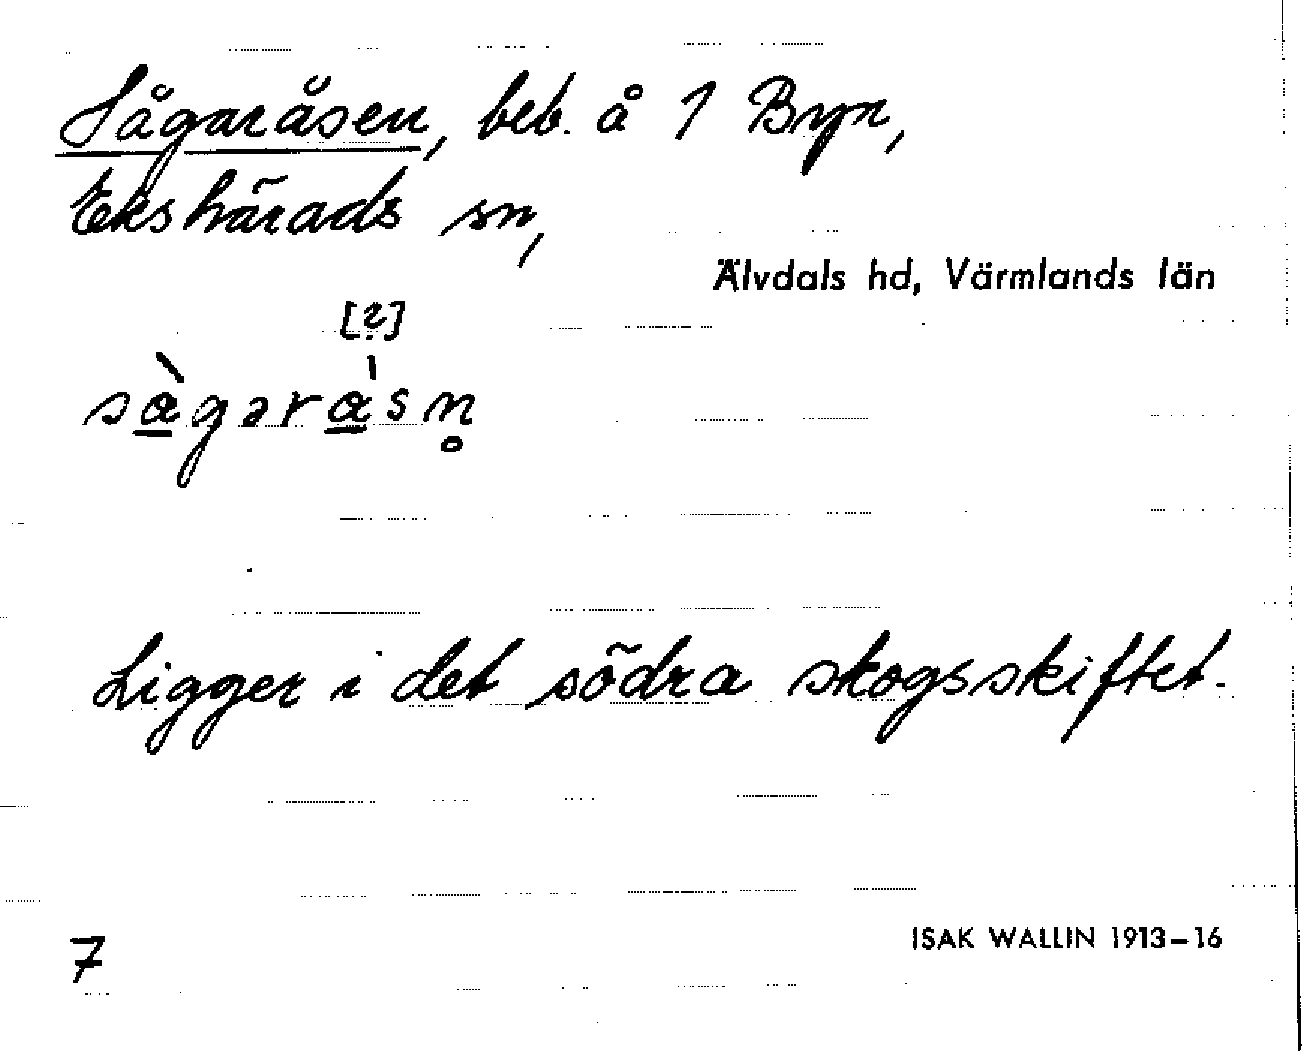 Sågaråsen, beb. å 1 Byn,
Ekshärads sn,
Älvdals hd, Värmlands län
[?]
sàgəràsn̥
Ligger i det södra skogsskiftet.
7
ISAK WALLIN 1913–16